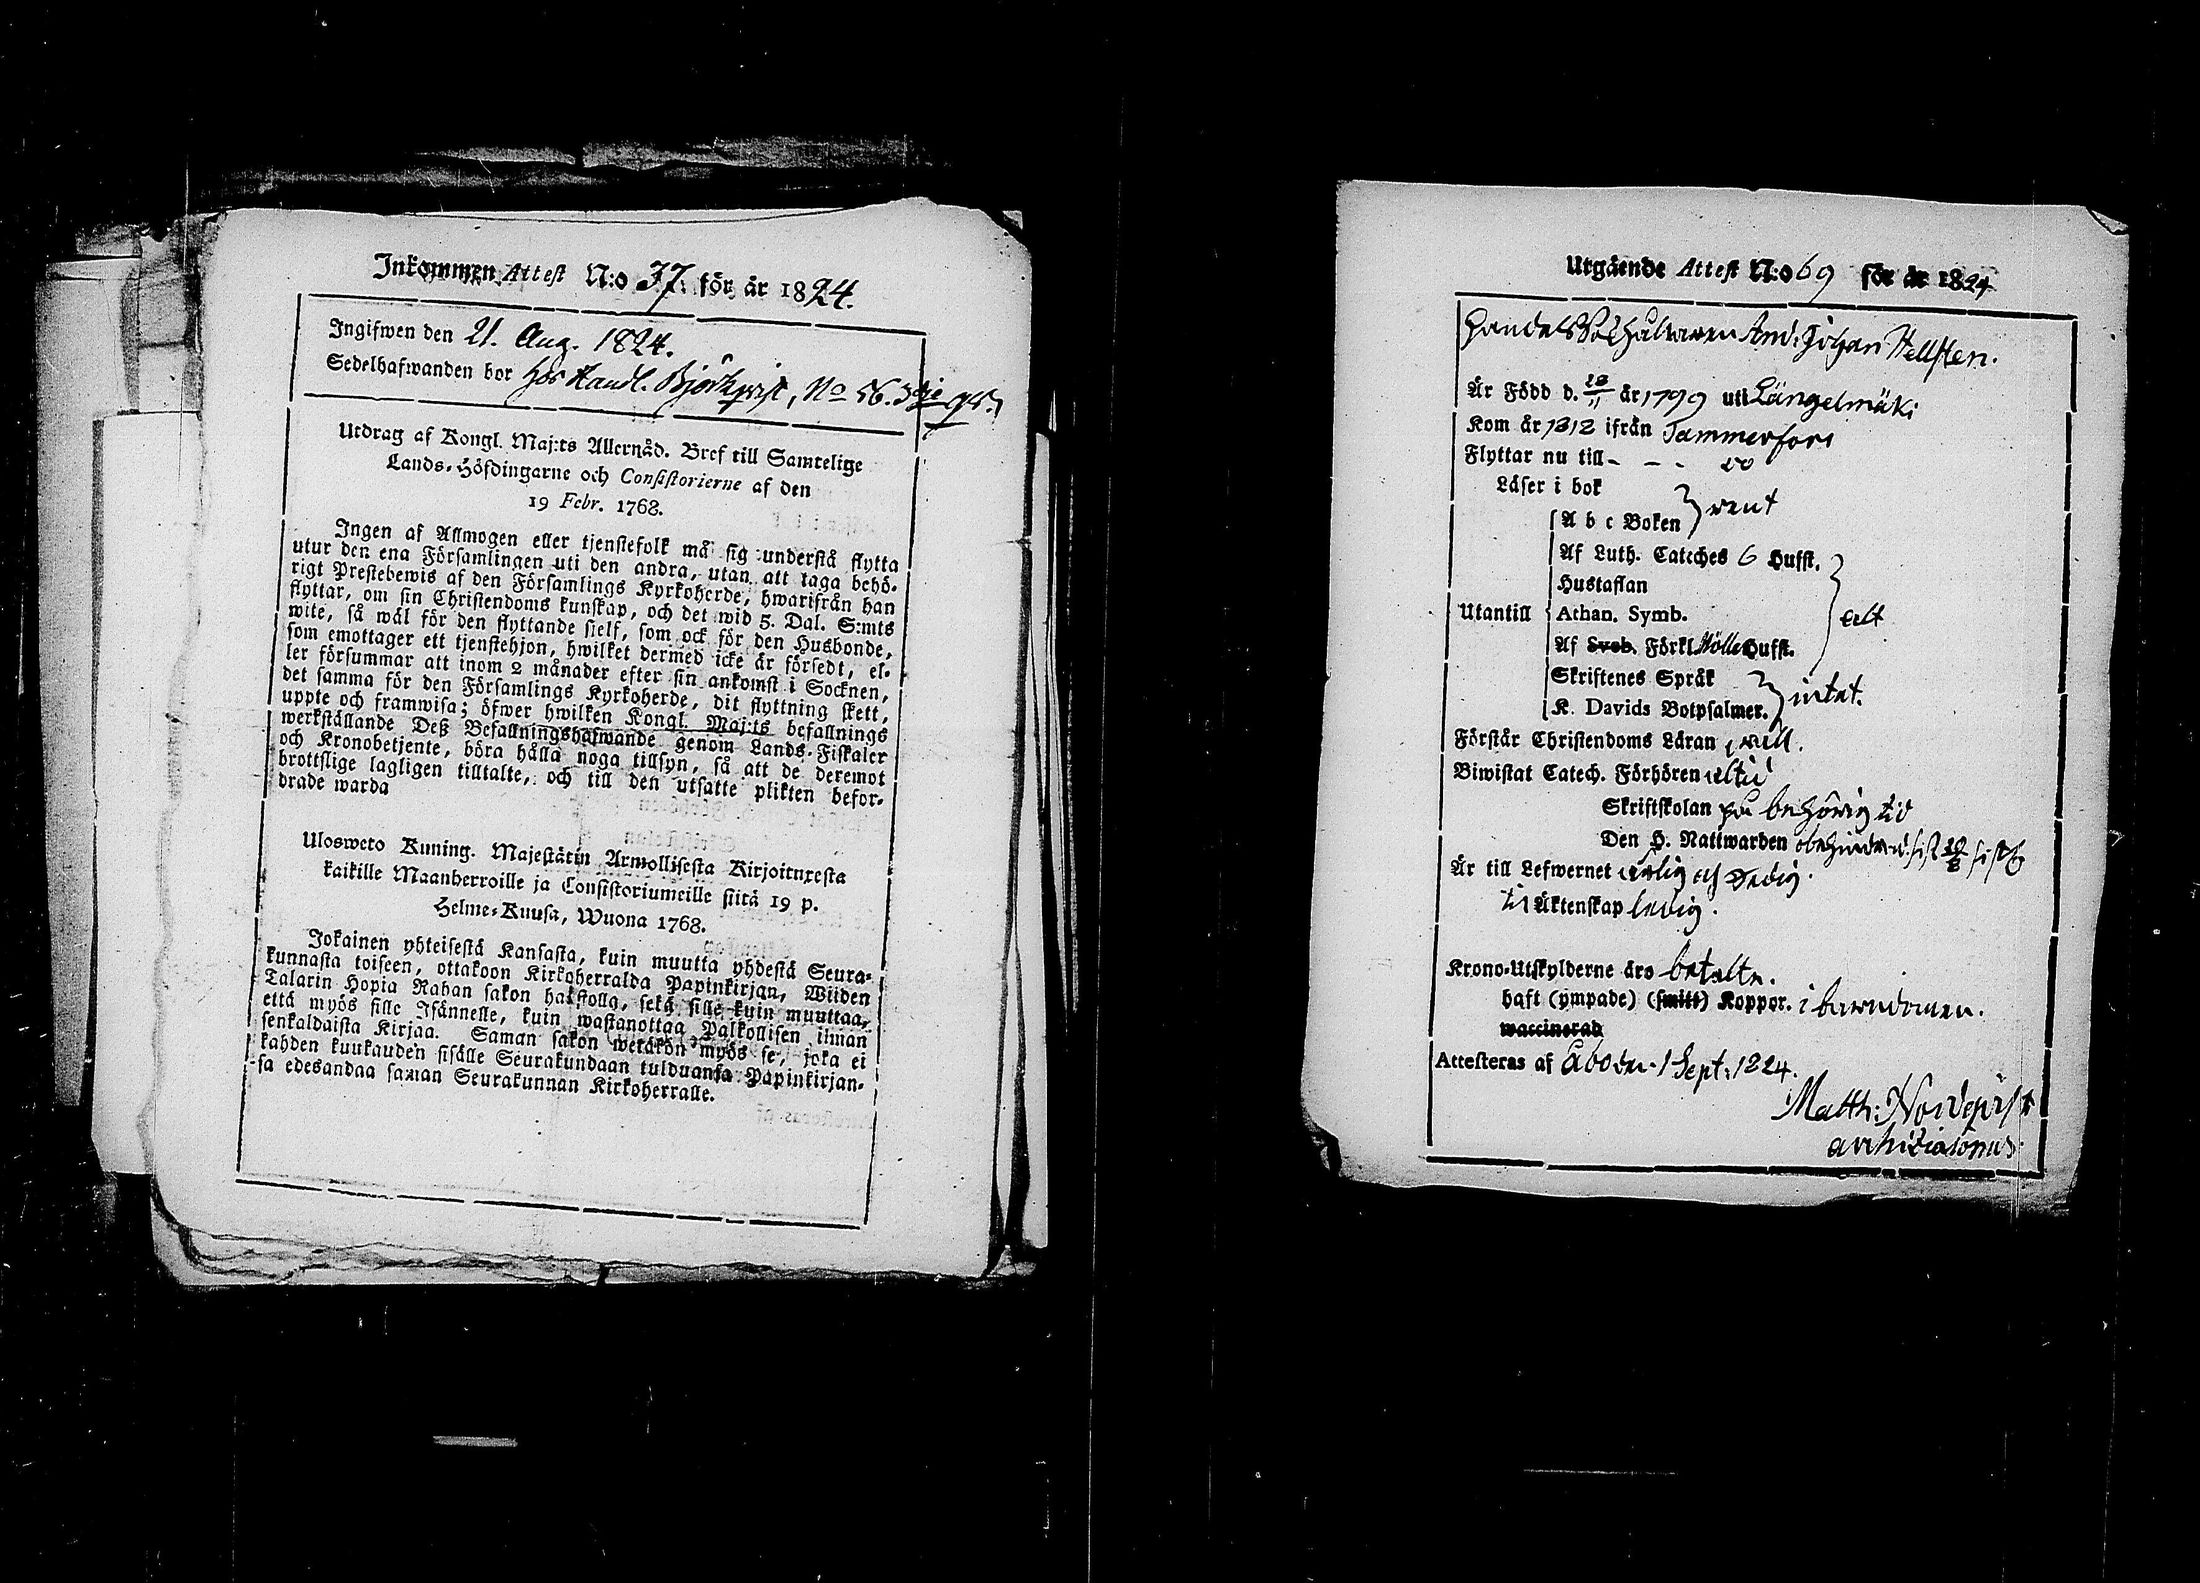 Inkommen Attest N:o 37. för år 1824.
Ingifwen den 21. Aug. 1824.
Sedelhafwanden bor hos Handl. Björkqvist, No 56. 3die qv.
Utdrag af Kongl. Maj:ts Allernåd. Bref till Samtelige
Lands-Höfdingarne och Consistorierne af den
19 Febr. 1768.
Ingen af Allmogen eller tjenstefolk må sig understå flytta
utur den ena Församlingen uti den andra, utan att taga behö-
rigt Prestebewis af den Församlings Kyrkoherde, hwarifrån han
flyttar, om sin Christendoms kunskap, och det wid 5. Dal. S:mts
wite, så wäl för den flyttande sielf, som ock för den Husbonde,
som emottager ett tjenstehjon, hwilket dermed icke är försedt, el-
ler försummar att inom 2 månader efter sin ankomst i Socknen,
det samma för den Församlings Kyrkoherde, dit flyttning skett,
uppte och framwisa; öfwer hwilken Kongl. Maj:ts befallnings
werkställande Deß Befallningshafwande genom Lands-Fiskaler
och Kronobetjente, böra hålla noga tillsyn, så att de deremot
brottslige lagligen tilltalte, och till den utsatte plikten befor-
drade warda
Ulosweto Kuning. Majestätin Armollisesta Kirjoituxesta
kaikille Maanherroille ja Consistoriumeille siitä 19 p.
Helme-Kuusa, Wuona 1768.
Jokainen yhteisestä Kansasta, kuin muutta yhdestä Seura-
kunnasta toiseen, ottakoon Kirkoherralda Papinkirjan, Wiiden
Talarin Hopia Rahan sakon hakstolla, sekä sille kuin muuttaa,
että myös sille Isännelle, kuin wastanottaa Palkollisen ilman
senkaldaista Kirjaa. Saman sakon wetäkön myös se, joka ei
kahden kuukauden sisälle Seurakundaan tulduansa Papinkirjan-
sa edesandaa saman Seurakunnan Kirkoherralle.
Utgående Attest N:o 69 för år 1824
And: Johan Hellsten.
Är Född d. 18/11 år 1799 uti Längelmäki
Kom år 1812 ifrån Tammerfors
Flyttar nu till - - - do
Läser i bok
A b c Boken } rent
Af Luth. Cateches 6 Hufst.
Hustaflan
Utantill Athan. Symb.
Af Sveb. Förkl. Hufst.
Skriftenes Språk
K. Davids Botpsalmer. } intet.
Förstår Christendoms Läran will.
Biwistat Catech. Förhören altid
Skriftskolan på behörig tid
Den H. Nattwarden obehindrad sist
Är till Lefwernet ärlig och sedig.
till Äktenskap ledig.
Krono-Utskylderne äro betalte.
haft (ympade) (smitt) Koppor. i barndomen.
waccinerad
Attesteras af Åbo den 1 Sept: 1824.
Matth: Nordqvist
archidiaconus.